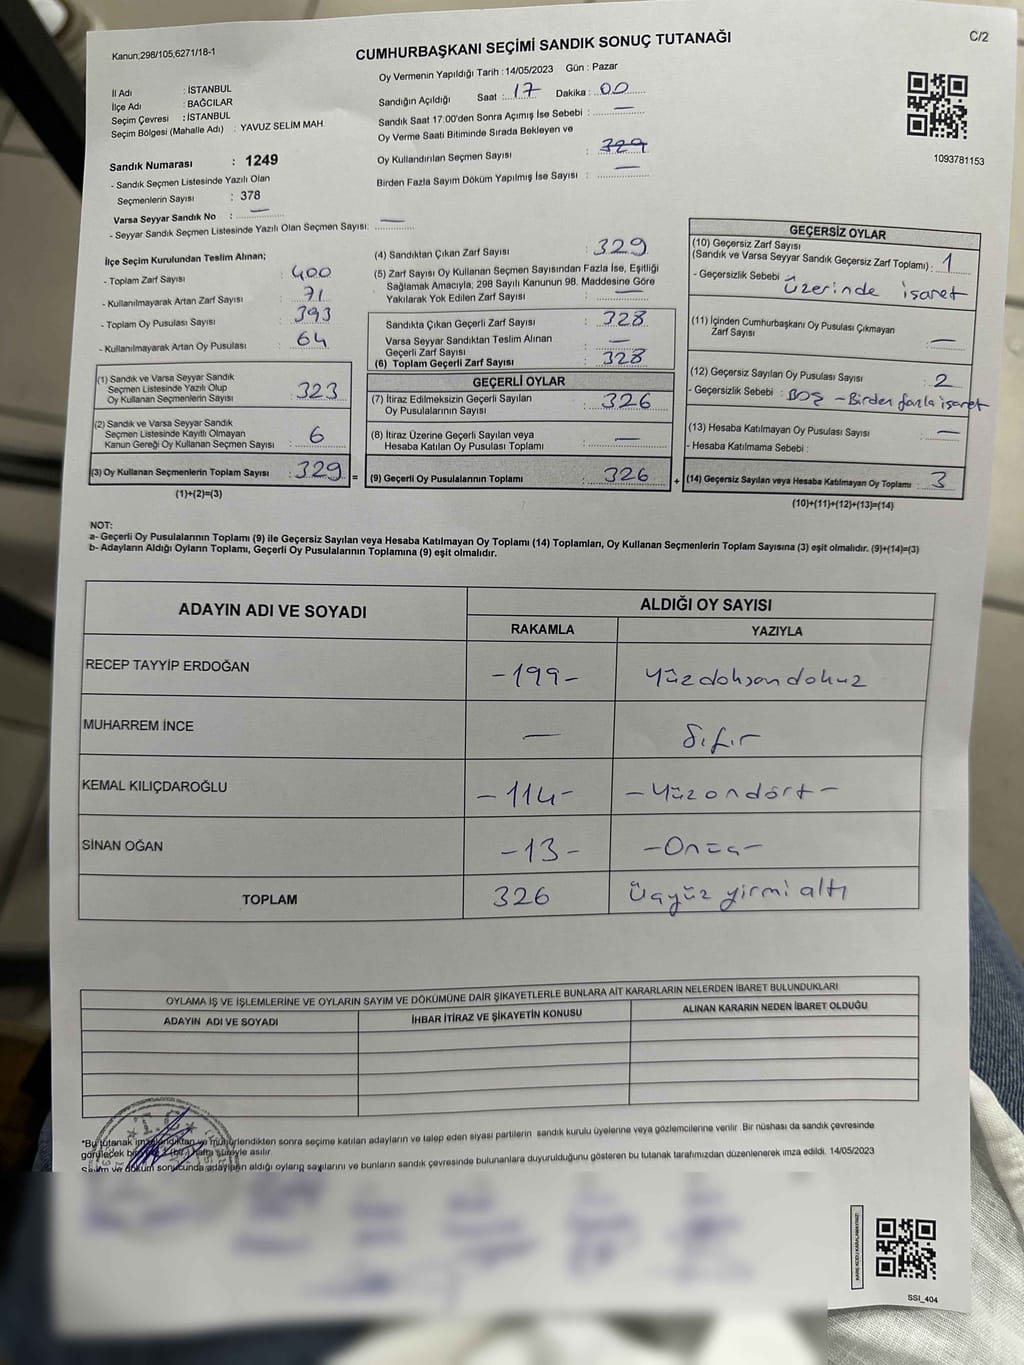 Kanun;298/105,6271/18-1
CUMHURBAŞKANI SEÇİMİ SANDIK SONUÇ TUTANAĞI
C/2
Oy Vermenin Yapıldığı Tarih :14/05/2023 Gün : Pazar
İl Adı : İSTANBUL
İlçe Adı : BAĞCILAR
Seçim Çevresi : İSTANBUL
Seçim Bölgesi (Mahalle Adı) : YAVUZ SELİM MAH.
Sandığın Açıldığı Saat : 17 Dakika : 00
Sandık Saat 17:00'den Sonra Açımış İse Sebebi : —
Oy Verme Saati Bitiminde Sırada Bekleyen ve
Oy Kullandırılan Seçmen Sayısı : 329
Birden Fazla Sayım Döküm Yapılmış İse Sayısı : —
1093781153
Sandık Numarası : 1249
- Sandık Seçmen Listesinde Yazılı Olan
Seçmenlerin Sayısı : 378
Varsa Seyyar Sandık No : —
- Seyyar Sandık Seçmen Listesinde Yazılı Olan Seçmen Sayısı: —
İlçe Seçim Kurulundan Teslim Alınan;
- Toplam Zarf Sayısı : 400
- Kullanılmayarak Artan Zarf Sayısı : 71
- Toplam Oy Pusulası Sayısı : 393
- Kullanılmayarak Artan Oy Pusulası : 64
(1) Sandık ve Varsa Seyyar Sandık
Seçmen Listesinde Yazılı Olup
Oy Kullanan Seçmenlerin Sayısı : 323
(2) Sandık ve Varsa Seyyar Sandık
Seçmen Listesinde Kayıtlı Olmayan
Kanun Gereği Oy Kullanan Seçmen Sayısı : 6
(3) Oy Kullanan Seçmenlerin Toplam Sayısı : 329
(1)+(2)=(3)
(4) Sandıktan Çıkan Zarf Sayısı : 329
(5) Zarf Sayısı Oy Kullanan Seçmen Sayısından Fazla İse, Eşitliği
Sağlamak Amacıyla; 298 Sayılı Kanunun 98. Maddesine Göre
Yakılarak Yok Edilen Zarf Sayısı : —
Sandıkta Çıkan Geçerli Zarf Sayısı : 328
Varsa Seyyar Sandıktan Teslim Alınan
Geçerli Zarf Sayısı : —
(6) Toplam Geçerli Zarf Sayısı : 328
GEÇERLİ OYLAR
(7) İtiraz Edilmeksizin Geçerli Sayılan
Oy Pusulalarının Sayısı : 326
(8) İtiraz Üzerine Geçerli Sayılan veya
Hesaba Katılan Oy Pusulası Toplamı : —
= (9) Geçerli Oy Pusulalarının Toplamı : 326
GEÇERSİZ OYLAR
(10) Geçersiz Zarf Sayısı
(Sandık ve Varsa Seyyar Sandık Geçersiz Zarf Toplamı) : 1
- Geçersizlik Sebebi : Üzerinde işaret
(11) İçinden Cumhurbaşkanı Oy Pusulası Çıkmayan
Zarf Sayısı : —
(12) Geçersiz Sayılan Oy Pusulası Sayısı : 2
- Geçersizlik Sebebi : BOŞ - Birden fazla işaret
(13) Hesaba Katılmayan Oy Pusulası Sayısı : —
- Hesaba Katılmama Sebebi :
+ (14) Geçersiz Sayılan veya Hesaba Katılmayan Oy Toplamı : 3
(10)+(11)+(12)+(13)=(14)
NOT:
a- Geçerli Oy Pusulalarının Toplamı (9) ile Geçersiz Sayılan veya Hesaba Katılmayan Oy Toplamı (14) Toplamları, Oy Kullanan Seçmenlerin Toplam Sayısına (3) eşit olmalıdır. (9)+(14)=(3)
b- Adayların Aldığı Oyların Toplamı, Geçerli Oy Pusulalarının Toplamına (9) eşit olmalıdır.
ADAYIN ADI VE SOYADI
ALDIĞI OY SAYISI
RAKAMLA YAZIYLA
RECEP TAYYİP ERDOĞAN -199- Yüzdoksandokuz
MUHARREM İNCE — Sıfır
KEMAL KILIÇDAROĞLU -114- -Yüzondört-
SİNAN OĞAN -13- -Onüç-
TOPLAM 326 Üçyüz yirmi altı
OYLAMA İŞ VE İŞLEMLERİNE VE OYLARIN SAYIM VE DÖKÜMÜNE DAİR ŞİKAYETLERLE BUNLARA AİT KARARLARIN NELERDEN İBARET BULUNDUKLARI
ADAYIN ADI VE SOYADI İHBAR İTİRAZ VE ŞİKAYETİN KONUSU ALINAN KARARIN NEDEN İBARET OLDUĞU
T.C.
*Bu tutanak imzalandıktan ve mühürlendikten sonra seçime katılan adayların ve talep eden siyasi partilerin sandık kurulu üyelerine veya gözlemcilerine verilir. Bir nüshası da sandık çevresinde
görülecek bir yere 1 (bir) hafta süreyle asılır.
Sayım ve döküm sonucunda adayların aldığı oyların sayılarını ve bunların sandık çevresinde bulunanlara duyurulduğunu gösteren bu tutanak tarafımızdan düzenlenerek imza edildi. 14/05/2023
SSI_404